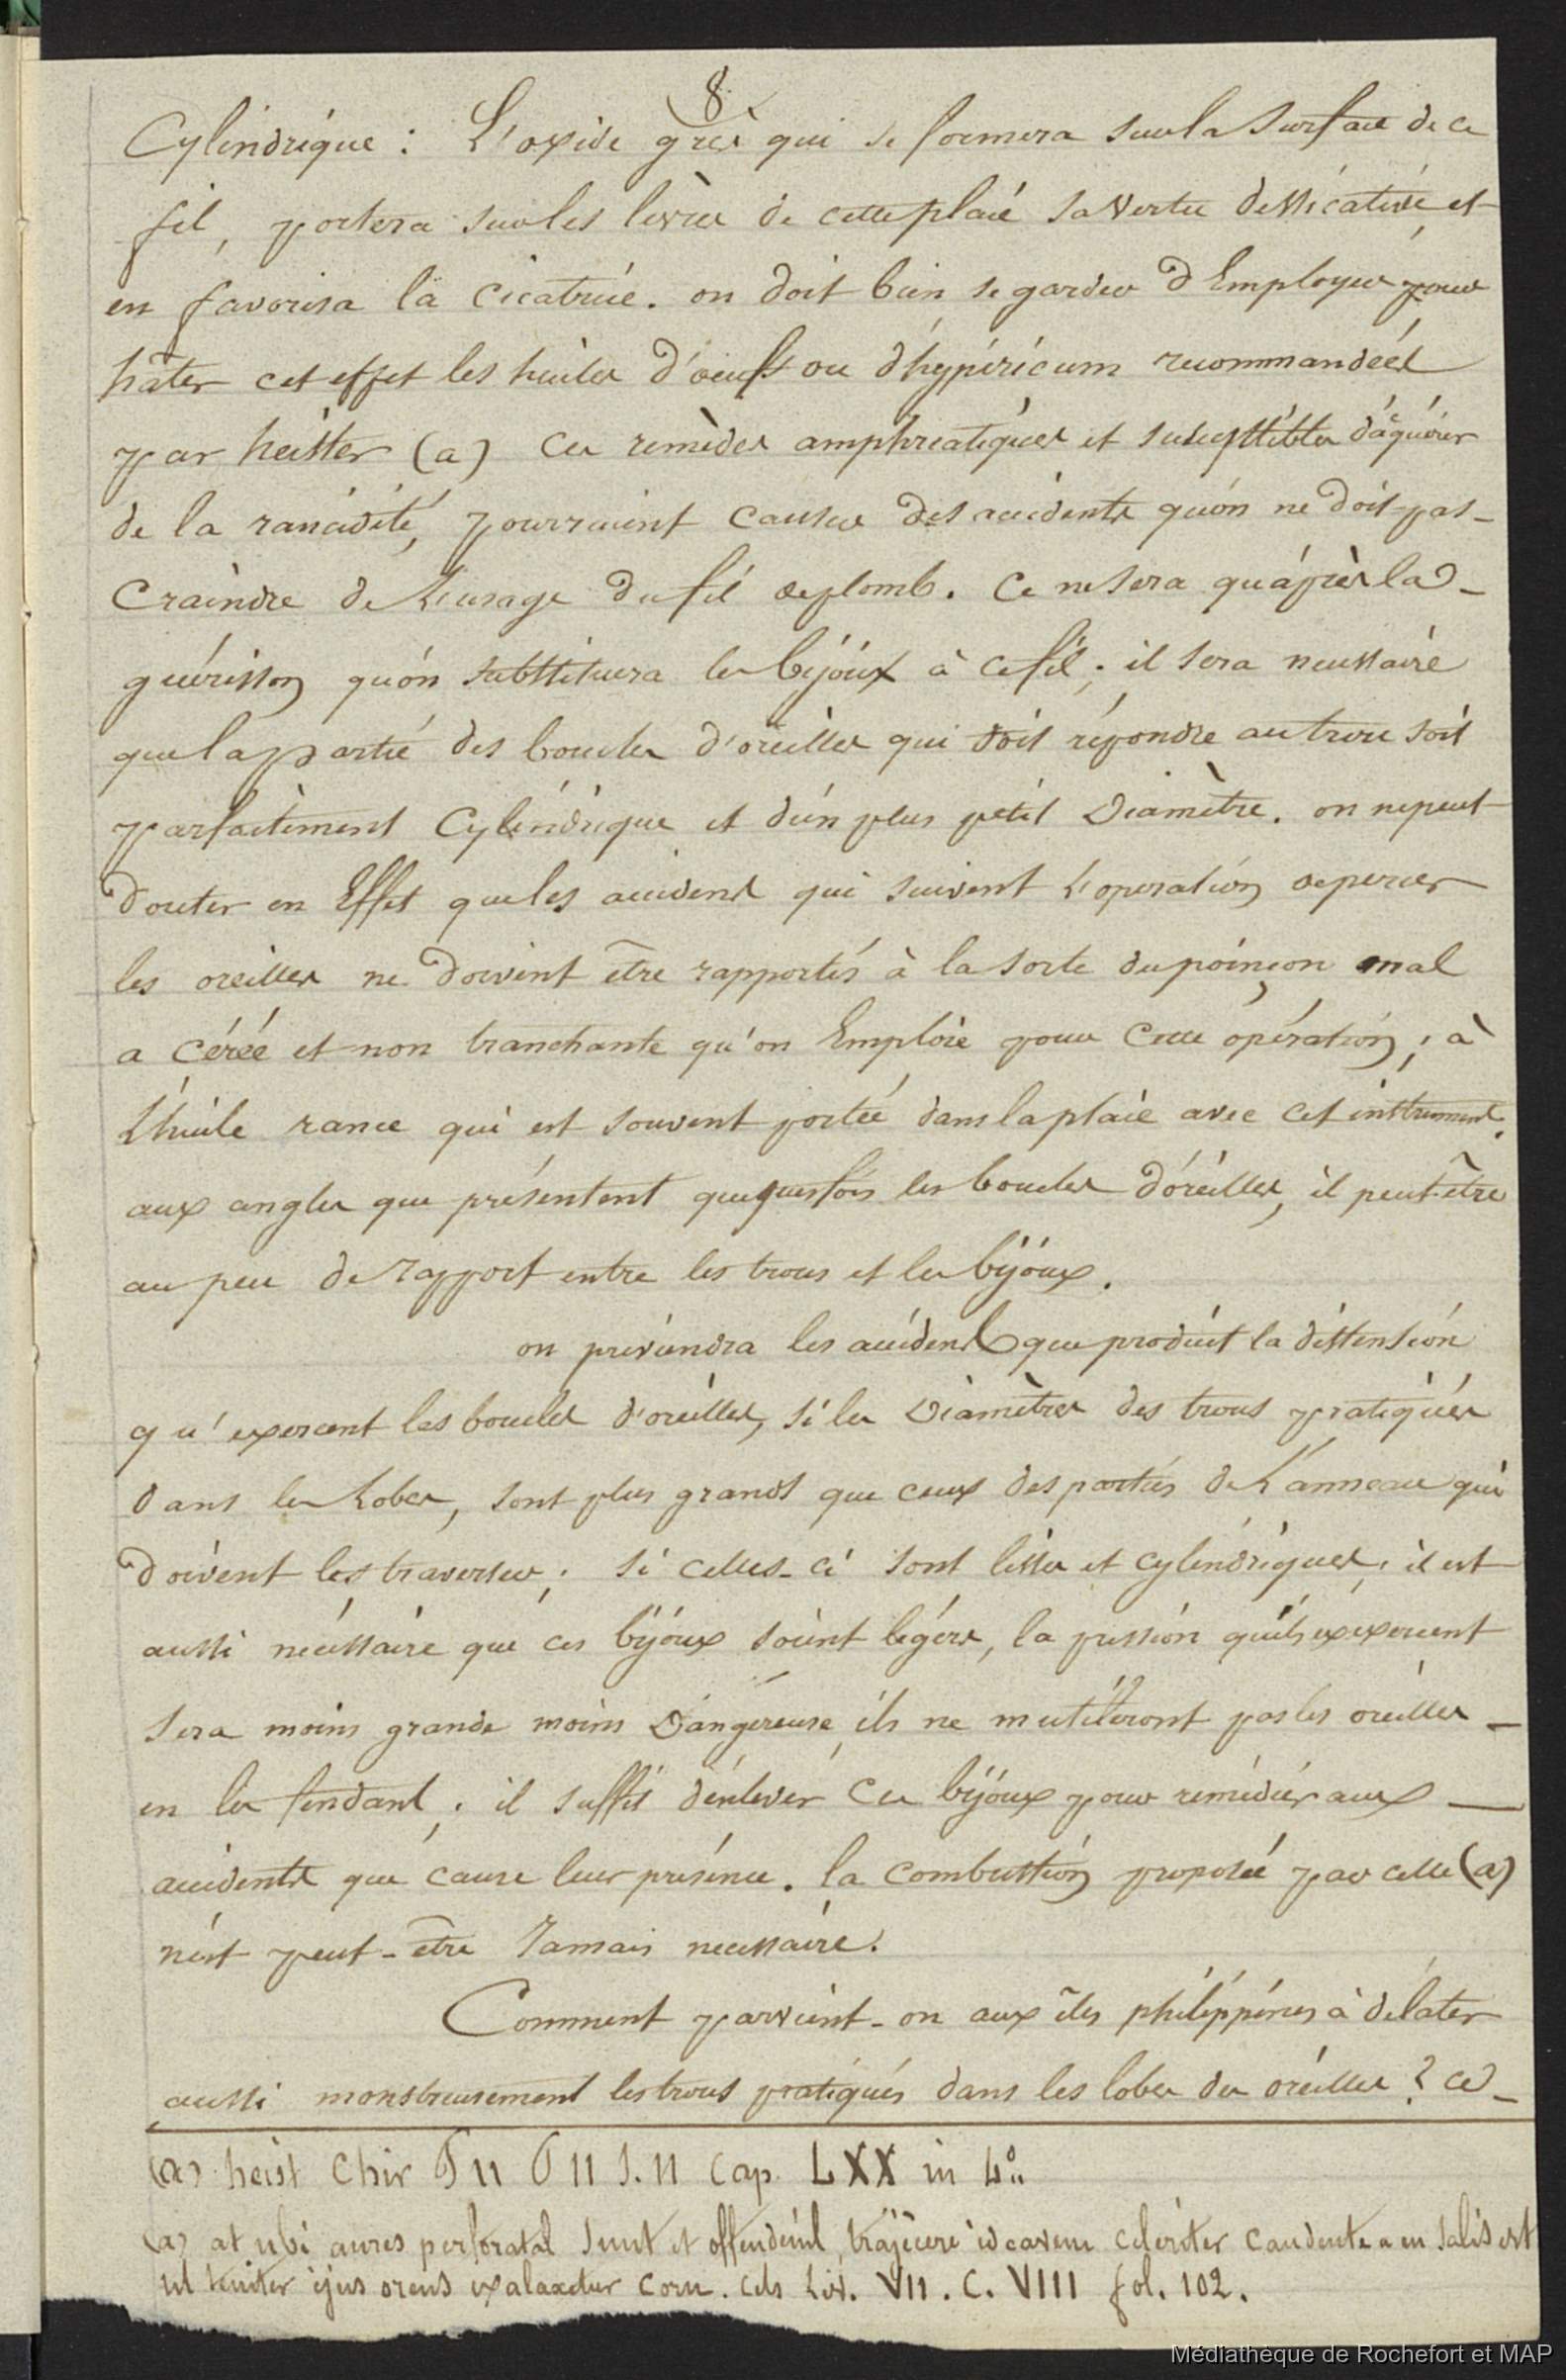 8
Cylindrique : L'oxide gris qui se formera sur la surface de ce
fil, portera sur les lèvres de cette plaié sa vertu dessicative, et
en favorisa la cicatrice. on doit bien se garder d'Employer pour
hâter cet effet les huiles d'oeufs ou d'hypéricum recommandées
par heister (a) Ces remèdes emphreatiques et susceptibles d'acquérir
de la rancidité, pourraient causer des accidents qu'on ne doit pas-
Craindre de L'usage du fil de plomb. Ce ne sera qu'après la -
guérison qu'on substituera les bijoux à ce fil; il sera necessaire
que la partie des boucles d'oreilles qui doit répondre au trou soit
parfaitement Cylindrique et d'un plus petit Diamètre. on ne peut
Douter en Effet que les accidens qui suivent L'operation de percer
les oreilles ne doivent être rapportés à la sorte du poinçon mal
a céréé et non tranchante qu'on Emploie pour Cette opération ; à
L'huile rance qui est souvent portée dans la plaie avec cet instrument.
aux angles que présentent quequesfois les boucles d'oreilles, il peut-être
au peu de rapport entre les trous et les bijoux.
on préviendra les accidens que produit la distension
qu'exercent les boucles d'oreilles, si les Diamètres des trous pratiqués
dans les Lobes, sont plus grands que ceux des parties de L'anneau qui
doivent les traverser; si celles-ci sont lisses et cylindriques; il est
aussi nécessaire que ces bijoux soient légers, la pression qu'ils exexercent
sera moins grande moins Dangereuse, ils ne mutileront pas les oreilles -
en les fendant; il suffit d'enlever Ces bijoux pour remédier aux —
accidents que cause leur présence. la Combustion proposée par celse (a)
n'est peut-être Jamais necessaire.
Comment parvient-on aux îles philippines à dilater
aussi monstreusement les trous pratiqués dans les lobes des oreilles ? Ce -
(a) heist Chir cap. LXX in 4°
(a) at ubi aures perforatal sunt et offendunt, trajicere id cavum celeriter candente satis est
ut leniter ejus exalaxetur corn. cels Liv. VII. C. VIII fol. 102.
Médiathèque de Rochefort et MAP